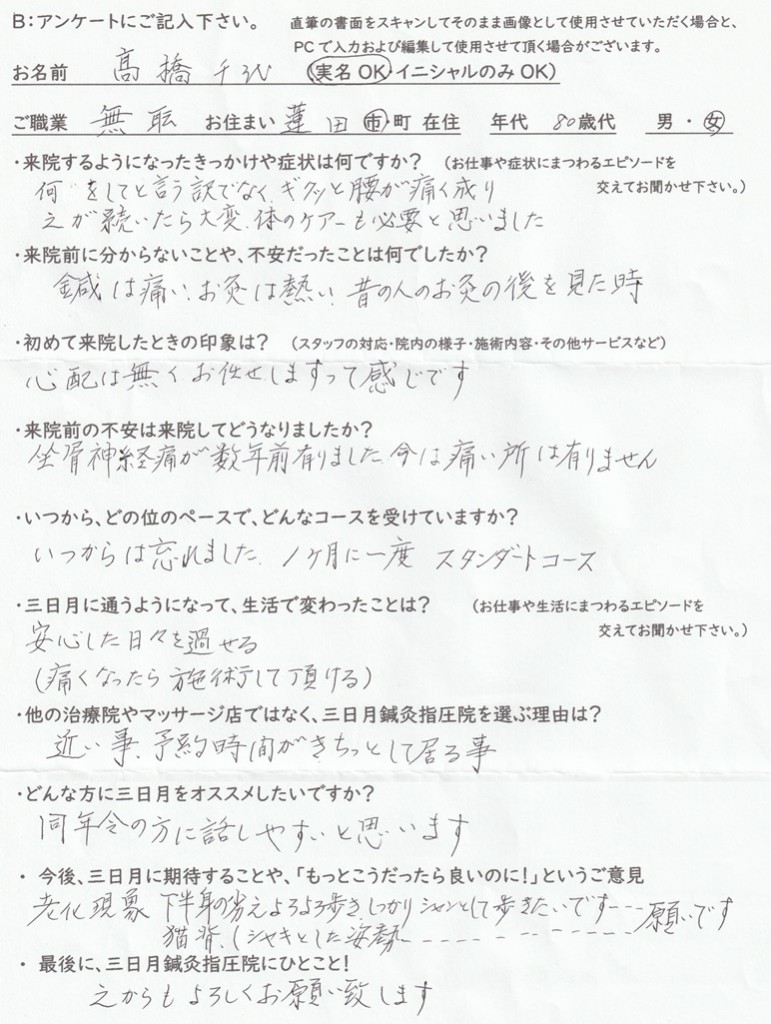 B：アンケートにご記入下さい。 直筆の書面をスキャンしてそのまま画像として使用させていただく場合と、
PCで入力および編集して使用させて頂く場合がございます。
お名前 髙橋千代 (実名OK・イニシャルのみOK)
ご職業 無職 お住まい 蓮田 市・町 在住 年代 80歳代 男・女
・来院するようになったきっかけや症状は何ですか？ (お仕事や症状にまつわるエピソードを
交えてお聞かせ下さい。)
何をしてと言う訳でなく、ギクッと腰が痛く成り
之が続いたら大変、体のケアーも必要と思いました
・来院前に分からないことや、不安だったことは何でしたか？
鍼は痛い、お灸は熱い、昔の人のお灸の後を見た時
・初めて来院したときの印象は？ (スタッフの対応・院内の様子・施術内容・その他サービスなど)
心配は無くお任せしますって感じです
・来院前の不安は来院してどうなりましたか？
坐骨神経痛が数年前有りました、今は痛い所は有りません
・いつから、どの位のペースで、どんなコースを受けていますか？
いつからは忘れました、1ヶ月に一度 スタンダートコース
・三日月に通うようになって、生活で変わったことは？ (お仕事や生活にまつわるエピソードを
交えてお聞かせ下さい。)
安心した日々を過せる
(痛くなったら施術して頂ける)
・他の治療院やマッサージ店ではなく、三日月鍼灸指圧院を選ぶ理由は？
近い事、予約時間がきちっとして居る事
・どんな方に三日月をオススメしたいですか？
同年令の方に話しやすいと思います
・今後、三日月に期待することや、「もっとこうだったら良いのに！」というご意見
老化現象 下半身の劣えよろよろ歩き、しっかりシャンとして歩きたいです---願いです
猫背、(シャキとした姿勢------------
・最後に、三日月鍼灸指圧院にひとこと！
之からもよろしくお願い致します